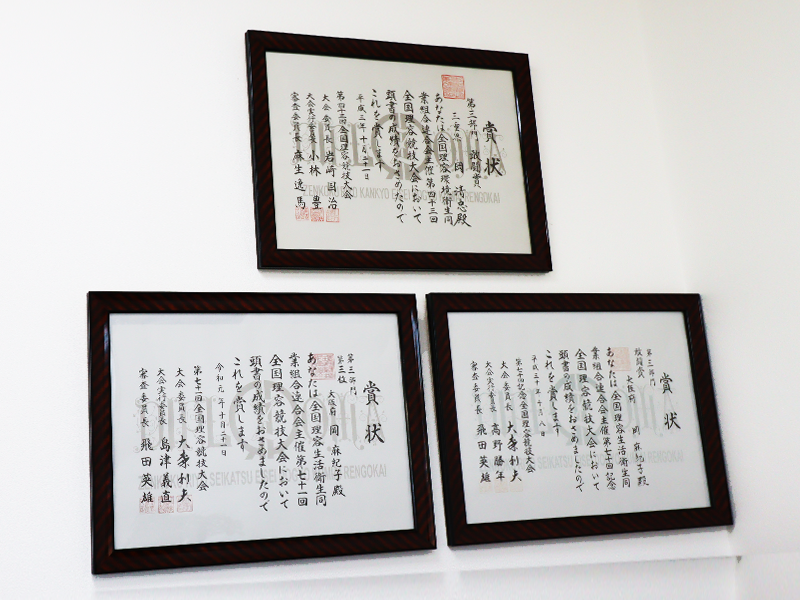 賞状
第三部門 敢闘賞
三重県 岡 清忠殿
あなたは全国理容環境衛生同
業組合連合会主催第四十三回
全国理容競技大会において
頭書の成績をおさめたので
これを賞します
平成三年十月二十一日
第四十三回全国理容競技大会
大会委員長 岩崎国治
大会実行委員長 小林 豊
審査委員長 麻生逸馬
賞状
第三部門
第三位
大阪府 岡 麻紀子殿
あなたは全国理容生活衛生同
業組合連合会主催第七十一回
全国理容競技大会において
頭書の成績をおさめましたので
これを賞します
令和元年十月二十一日
第七十一回全国理容競技大会
大会委員長 大森利夫
大会実行委員長 島津義直
審査委員長 飛田英雄
賞状
第三部門
敢闘賞
大阪府 岡 麻紀子殿
あなたは全国理容生活衛生同
業組合連合会主催第七十回記念
全国理容競技大会において
頭書の成績をおさめましたので
これを賞します
平成三十年十月八日
第七十回記念全国理容競技大会
大会委員長 大森利夫
大会実行委員長 高野勝年
審査委員長 飛田英雄